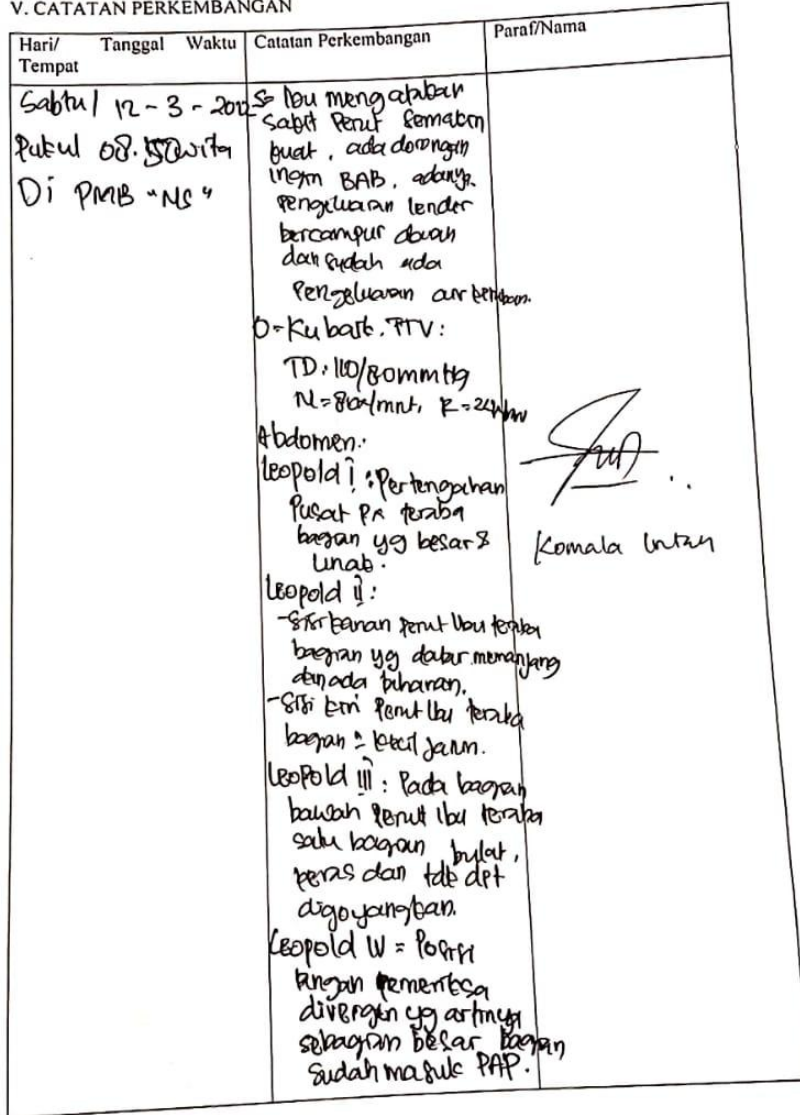 V. CATATAN PERKEMBANGAN
Hari/ Tanggal Waktu
Tempat
Catatan Perkembangan
Paraf/Nama
Sabtu/ 12-3-2022
Pukul 08.50 wita
Di PMB "NS"
S= Ibu mengatakan
sakit Perut semakin
kuat, ada dorongan
ingin BAB, adanya
pengeluaran lendir
bercampur darah
dan sudah ada
Pengeluaran air ketuban.
O= Ku baik. TTV:
TD: 110/80mmHg
N=80x/mnt, R=24x/mnt
Abdomen:
Leopold I : Pertengahan
Pusat PX teraba
bagian yg besar &
lunak.
Leopold II:
-Sisi kanan Perut Ibu teraba
bagian yg datar memanjang
dan ada tahanan.
-Sisi kiri Perut Ibu teraba
bagian kecil janin.
Leopold III : Pada bagian
bawah Perut Ibu teraba
satu bagian bulat,
keras dan tdk dpt
digoyangkan.
Leopold IV = Posisi
tangan pemeriksa
divergen yg artinya
sebagian besar bagian
sudah masuk PAP.
Komala Intan